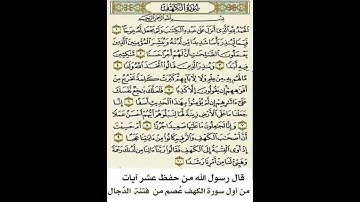 سُورَةُ الْكَهْفِ
بِسْمِ اللَّهِ الرَّحْمَٰنِ الرَّحِيمِ
الْحَمْدُ لِلَّهِ الَّذِي أَنزَلَ عَلَىٰ عَبْدِهِ الْكِتَابَ وَلَمْ يَجْعَل لَّهُ عِوَجًا ۝١
قَيِّمًا لِّيُنذِرَ بَأْسًا شَدِيدًا مِّن لَّدُنْهُ وَيُبَشِّرَ الْمُؤْمِنِينَ الَّذِينَ
يَعْمَلُونَ الصَّالِحَاتِ أَنَّ لَهُمْ أَجْرًا حَسَنًا ۝٢ مَّاكِثِينَ
فِيهِ أَبَدًا ۝٣ وَيُنذِرَ الَّذِينَ قَالُوا اتَّخَذَ اللَّهُ وَلَدًا ۝٤
مَّا لَهُم بِهِ مِنْ عِلْمٍ وَلَا لِآبَائِهِمْ كَبُرَتْ كَلِمَةً تَخْرُجُ مِنْ
أَفْوَاهِهِمْ إِن يَقُولُونَ إِلَّا كَذِبًا ۝٥ فَلَعَلَّكَ بَاخِعٌ نَّفْسَكَ
عَلَىٰ آثَارِهِمْ إِن لَّمْ يُؤْمِنُوا بِهَٰذَا الْحَدِيثِ أَسَفًا ۝٦ إِنَّا
جَعَلْنَا مَا عَلَى الْأَرْضِ زِينَةً لَّهَا لِنَبْلُوَهُمْ أَيُّهُمْ أَحْسَنُ عَمَلًا
۝٧ وَإِنَّا لَجَاعِلُونَ مَا عَلَيْهَا صَعِيدًا جُرُزًا ۝٨ أَمْ حَسِبْتَ
أَنَّ أَصْحَابَ الْكَهْفِ وَالرَّقِيمِ كَانُوا مِنْ آيَاتِنَا عَجَبًا ۝٩
إِذْ أَوَى الْفِتْيَةُ إِلَى الْكَهْفِ فَقَالُوا رَبَّنَا آتِنَا مِن لَّدُنكَ رَحْمَةً
وَهَيِّئْ لَنَا مِنْ أَمْرِنَا رَشَدًا ۝١٠
قال رسول الله من حفظ عشر آيات
من أول سورة الكهف عُصم من فتنة الدّجال